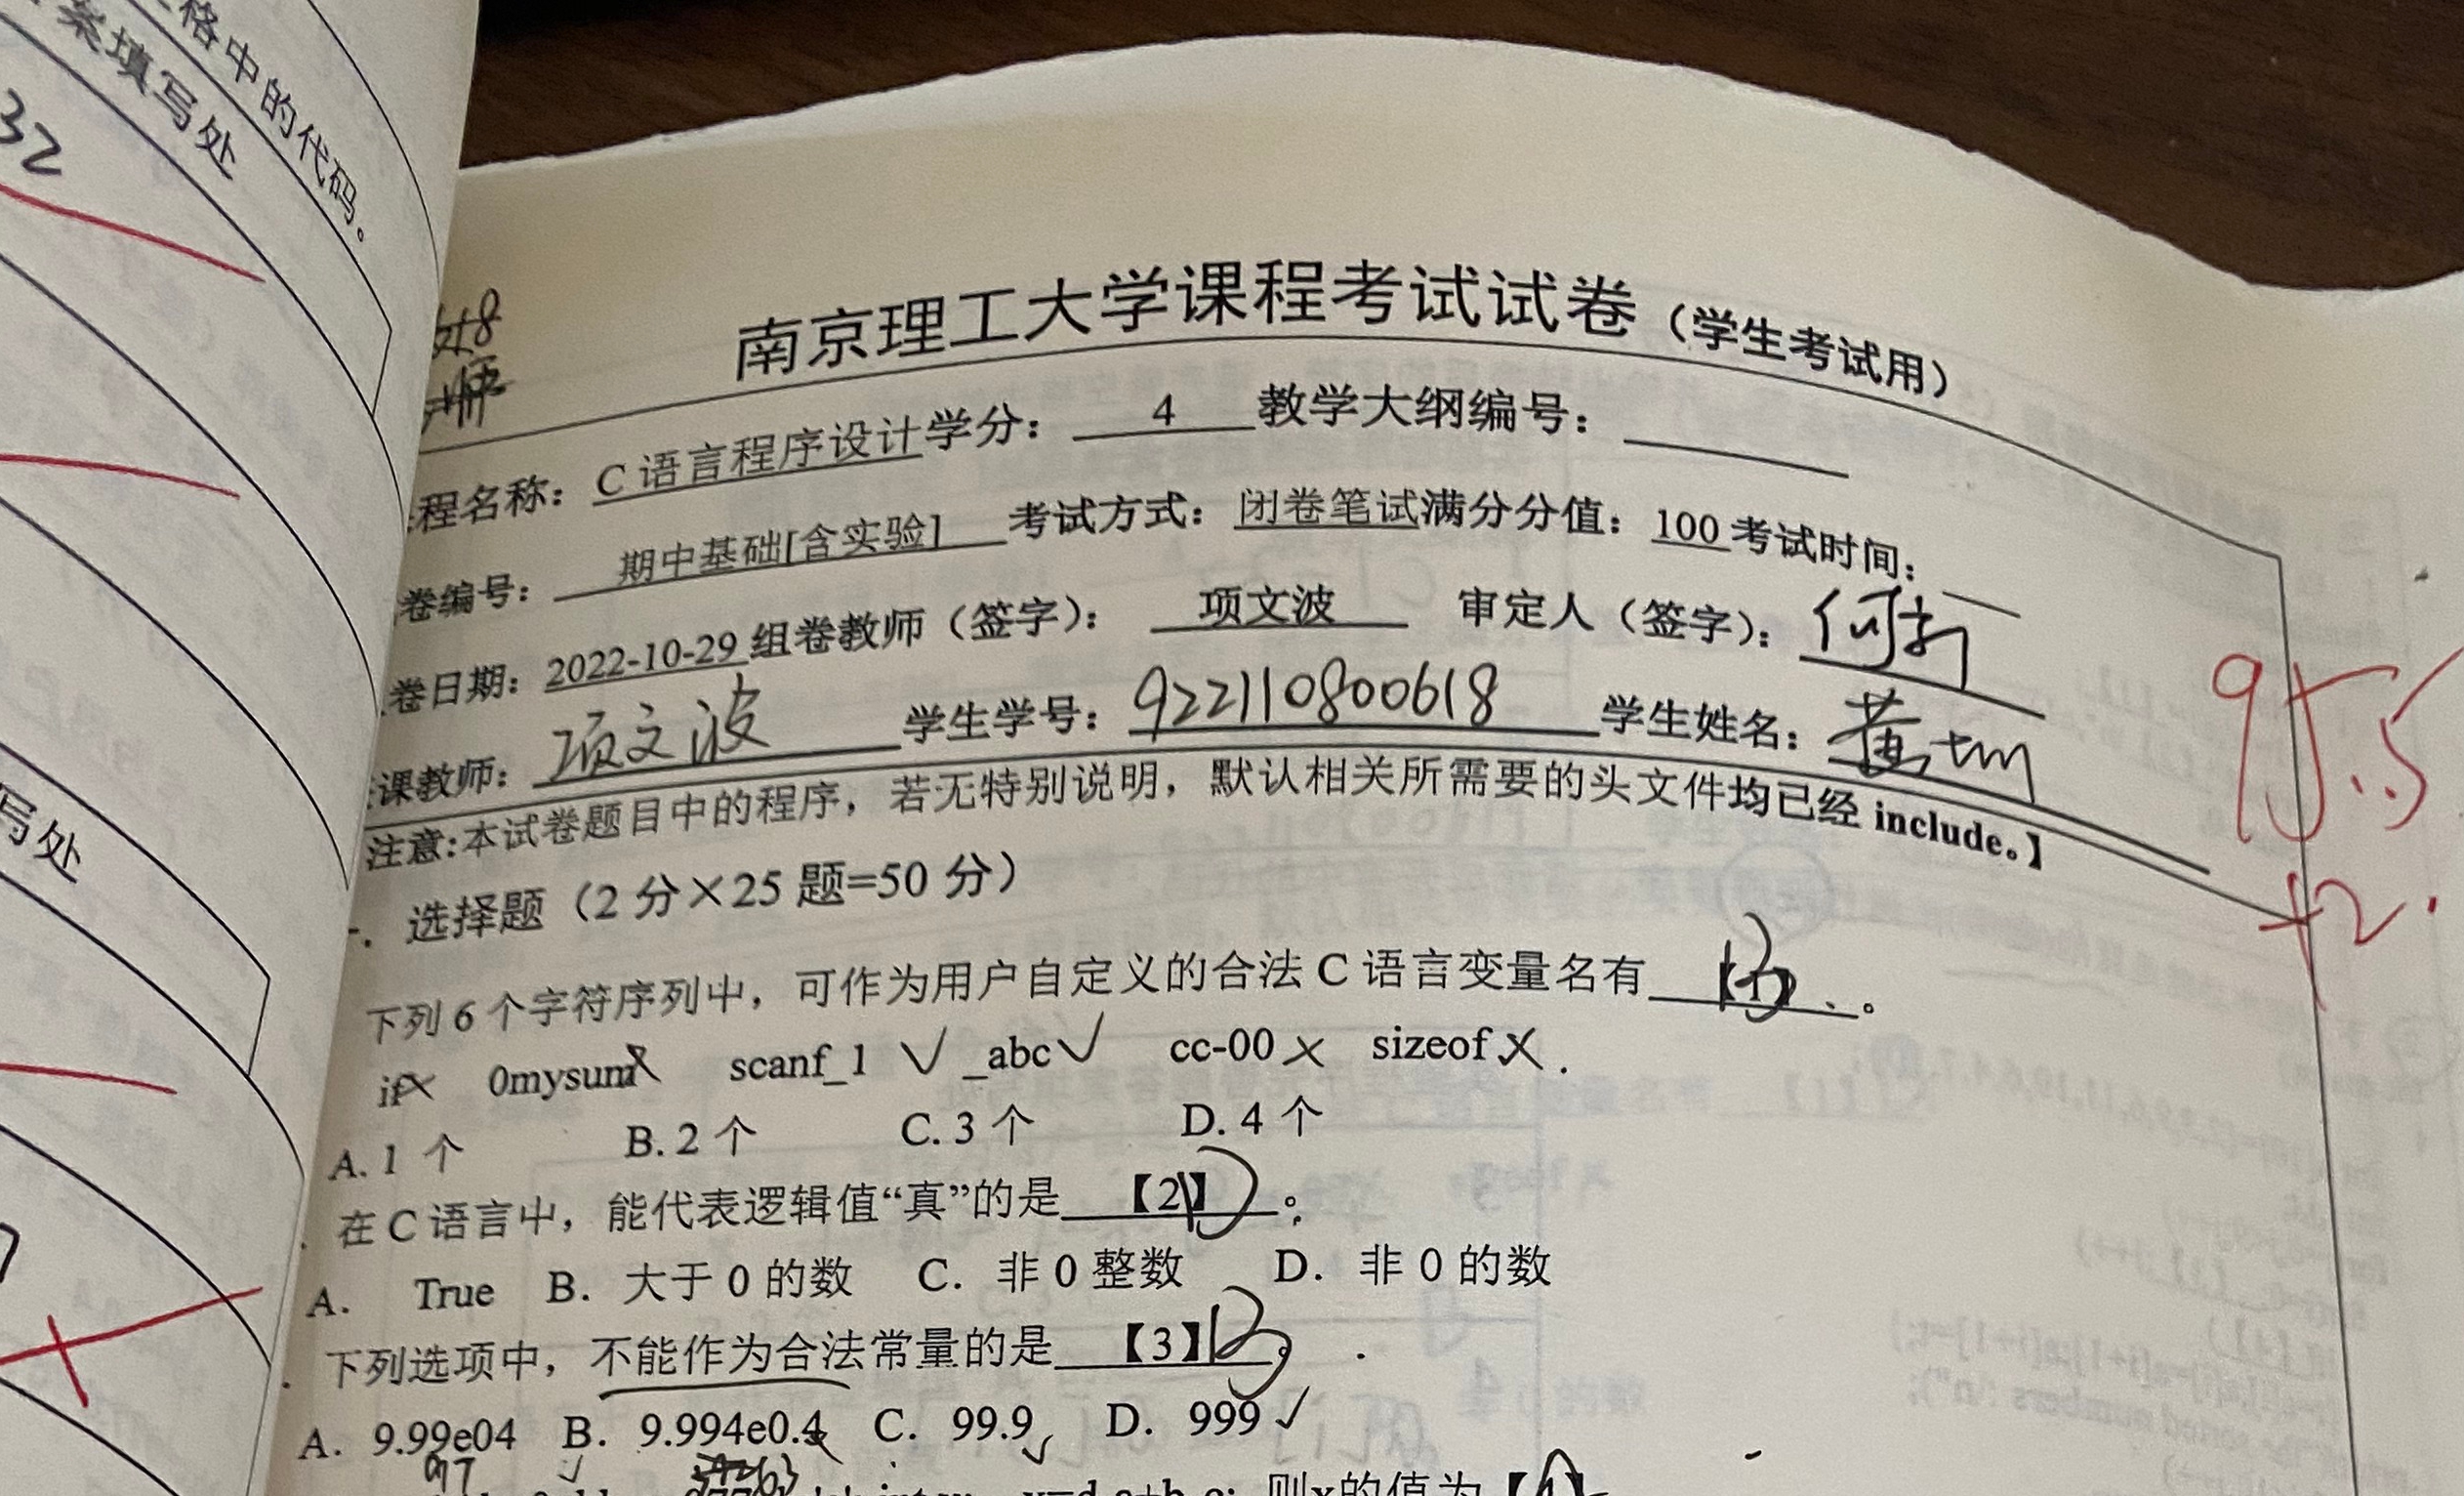 格中的代码。
案填写处
32
写处
南京理工大学课程考试试卷（学生考试用）
程名称： C 语言程序设计 学分： 4 教学大纲编号：
卷编号： 期中基础[含实验] 考试方式： 闭卷笔试 满分分值： 100 考试时间：
卷日期： 2022-10-29 组卷教师（签字）： 项文波 审定人（签字）：
课教师： 项文波 学生学号： 922110800618 学生姓名： 黄
注意:本试卷题目中的程序，若无特别说明，默认相关所需要的头文件均已经 include。】
95.5
+2.
选择题（2 分×25 题=50 分）
下列 6 个字符序列中，可作为用户自定义的合法 C 语言变量名有 【1】 B 。
if × 0mysum × scanf_1 √ _abc √ cc-00 × sizeof ×
A. 1 个 B. 2 个 C. 3 个 D. 4 个
在 C 语言中，能代表逻辑值“真”的是 【2】 D 。
A. True B. 大于 0 的数 C. 非 0 整数 D. 非 0 的数
下列选项中，不能作为合法常量的是 【3】 B 。
A. 9.99e04 B. 9.994e0.4 × C. 99.9 √ D. 999 √
97
则x的值为【4】